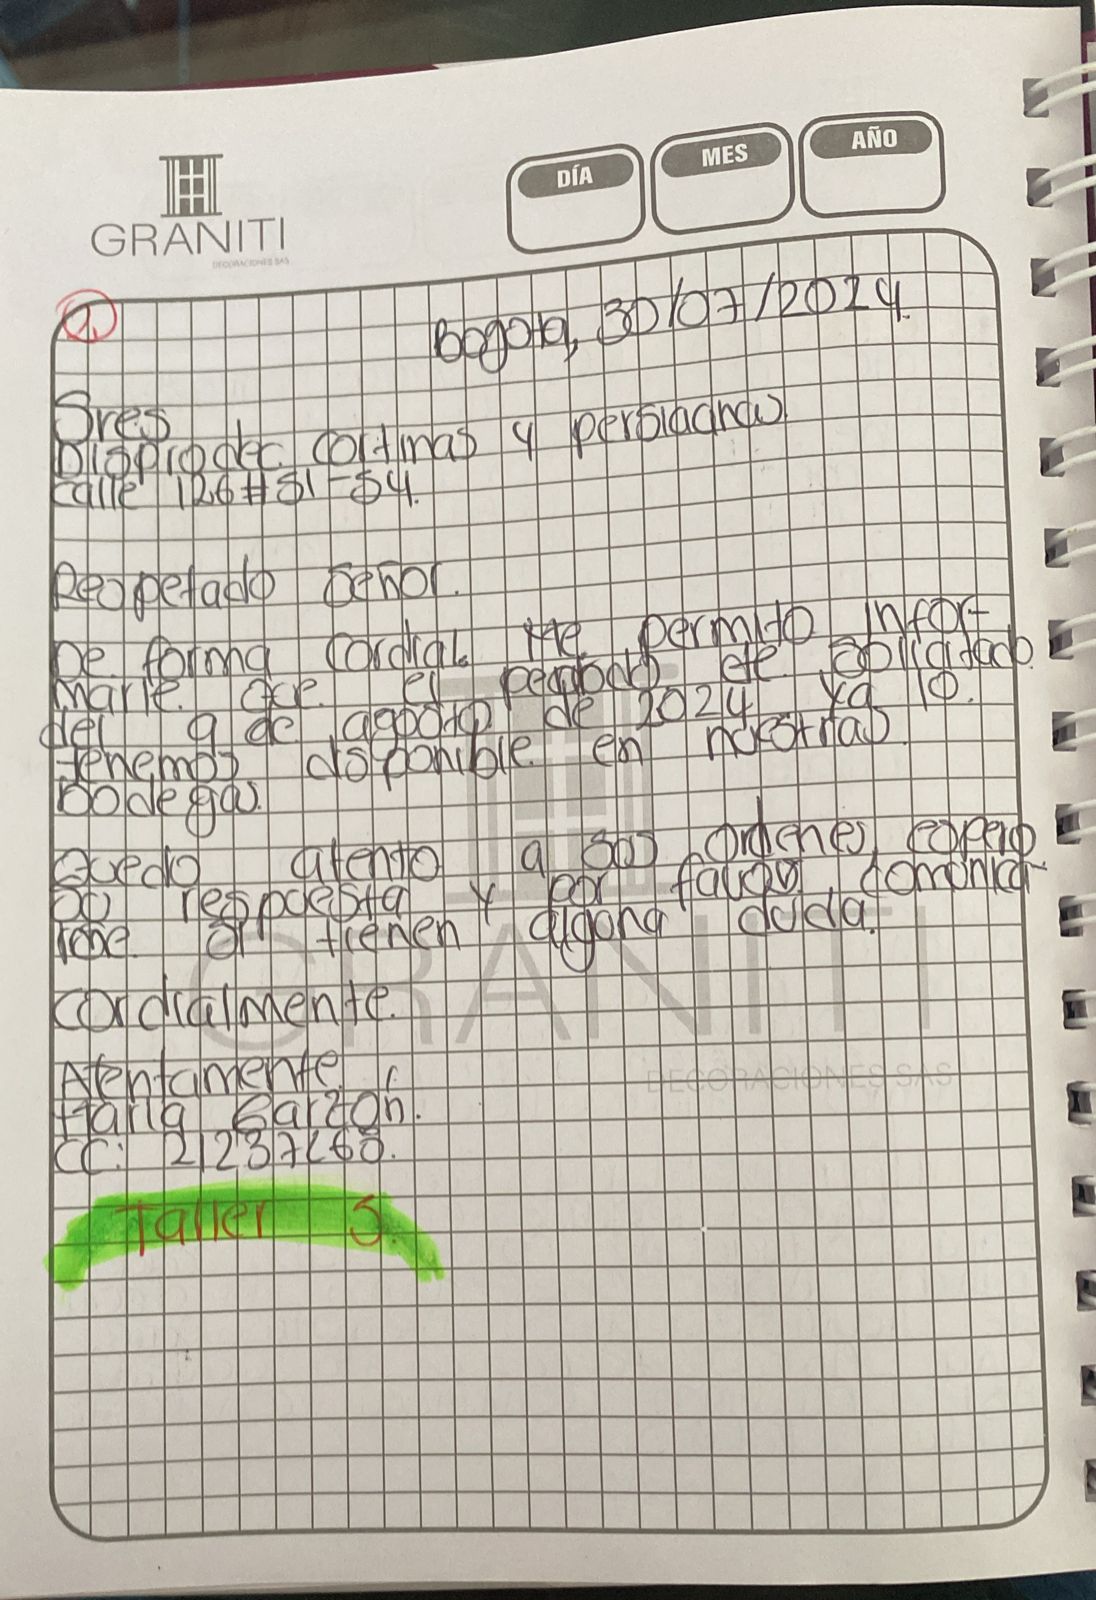 GRANITI
DECORACIONES SAS
DÍA
MES
AÑO
1,
Bogota, 30/07/2024.
Sres
Disprodec cortinas y persiaanas.
calle 126#51-54.
Respetado señor.
De forma cordial. Me permito infor-
marle. que. el de solicitado.
del 9 de agosto de 2024 ya lo.
tenemos disponible. en nuestras
bodegas.
Quedo atento a sus ordenes, espero
su respuesta y por favor, comunicar
si tienen alguna duda.
cordialmente.
Atentamente
Maria Garzón.
CC:
Taller 5.
GRANITI
DECORACIONES SAS